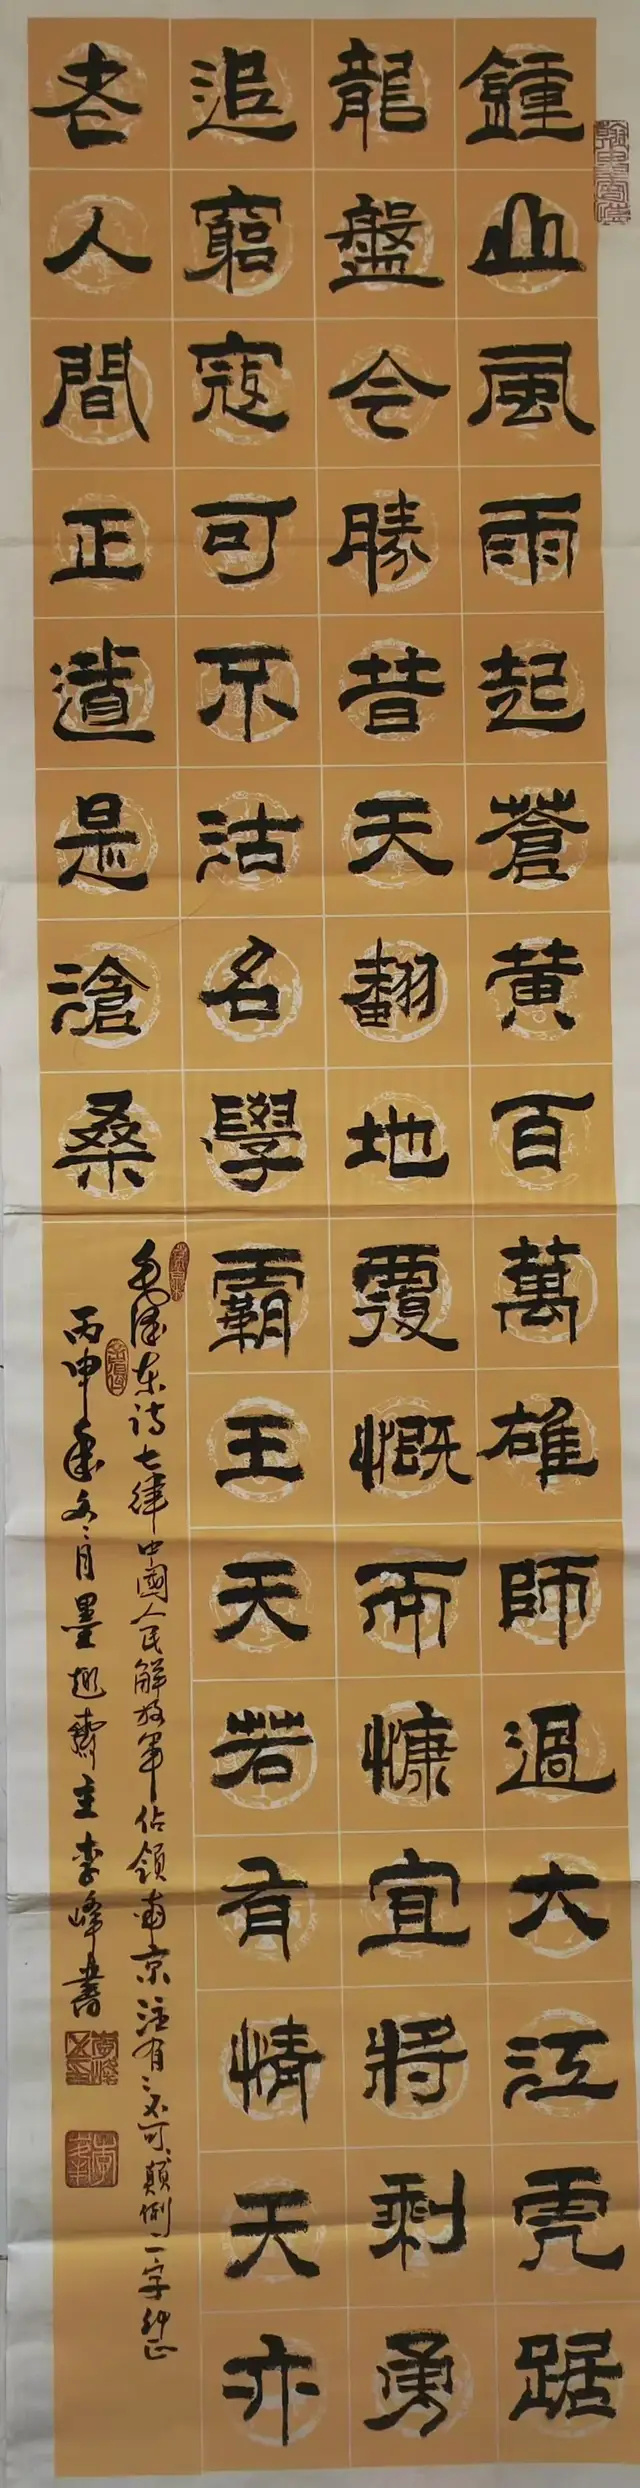 鍾山風雨起蒼黃百萬雄師過大江虎踞
龍盤今勝昔天翻地覆慨而慷宜將剩勇
追窮寇可不沽名學霸王天若有情天亦
老人間正道是滄桑
毛澤东诗七律中國人民解放军佔領南京注有不可顛倒一字
丙申年冬月墨趣齋主李峰書